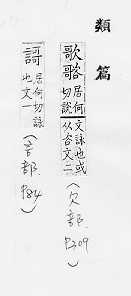 類篇
歌
居何切說
文詠也或
从谷文二
(欠部
P309)
謌
居何切詠
也文一
(言部
P84)